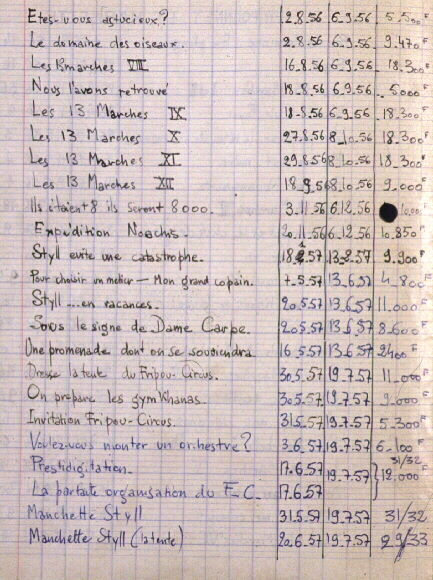 Etes-vous astucieux? 2.8.56 6.9.56 5.500F
Le domaine des oiseaux. 2.8.56 6.9.56 9.470F
Les 13 marches VIII 16.8.56 6.9.56 18.300F
Nous l'avons retrouvé 18.8.56 6.9.56 5000F
Les 13 Marches IX 18.8.56 6.9.56 18.300F
Les 13 Marches X 27.8.56 8.10.56 18.300F
Les 13 Marches XI 29.8.56 8.10.56 18.300F
Les 13 Marches XII 18.9.56 8.10.56 9.000F
Ils étaient 8 ils seront 8000. 3.11.56 6.12.56
Expédition 20.11.56 6.12.56 10.850F
Styll evite une catastrophe. 13.2.57 9.900F
Pour choisir un metier — Mon grand copain. 7.5.57 13.6.57 4.800F
Styll... en vacances. 20.5.57 13.6.57 11.000F
Sous le signe de Dame Carpe. 20.5.57 13.6.57 8.600F
Une promenade dont on se souviendra 16.5.57 13.6.57 2400F
Dresse la tente du Fripou-Circus. 30.5.57 19.7.57 11.000F
On prépare les gymkhanas. 30.5.57 19.7.57 9.000F
Invitation Fripou-Circus. 31.5.57 19.7.57 5.300F
Voulez-vous monter un orchestre? 3.6.57 19.7.57 6.100F
31/32
Prestidigitation. 17.6.57 19.7.57 } 12.000F
La parfaite organisation du F-C. 17.6.57
Manchette Styll 31.5.57 19.7.57 31/32
Manchette Styll (la tente) 20.6.57 19.7.57 29/33